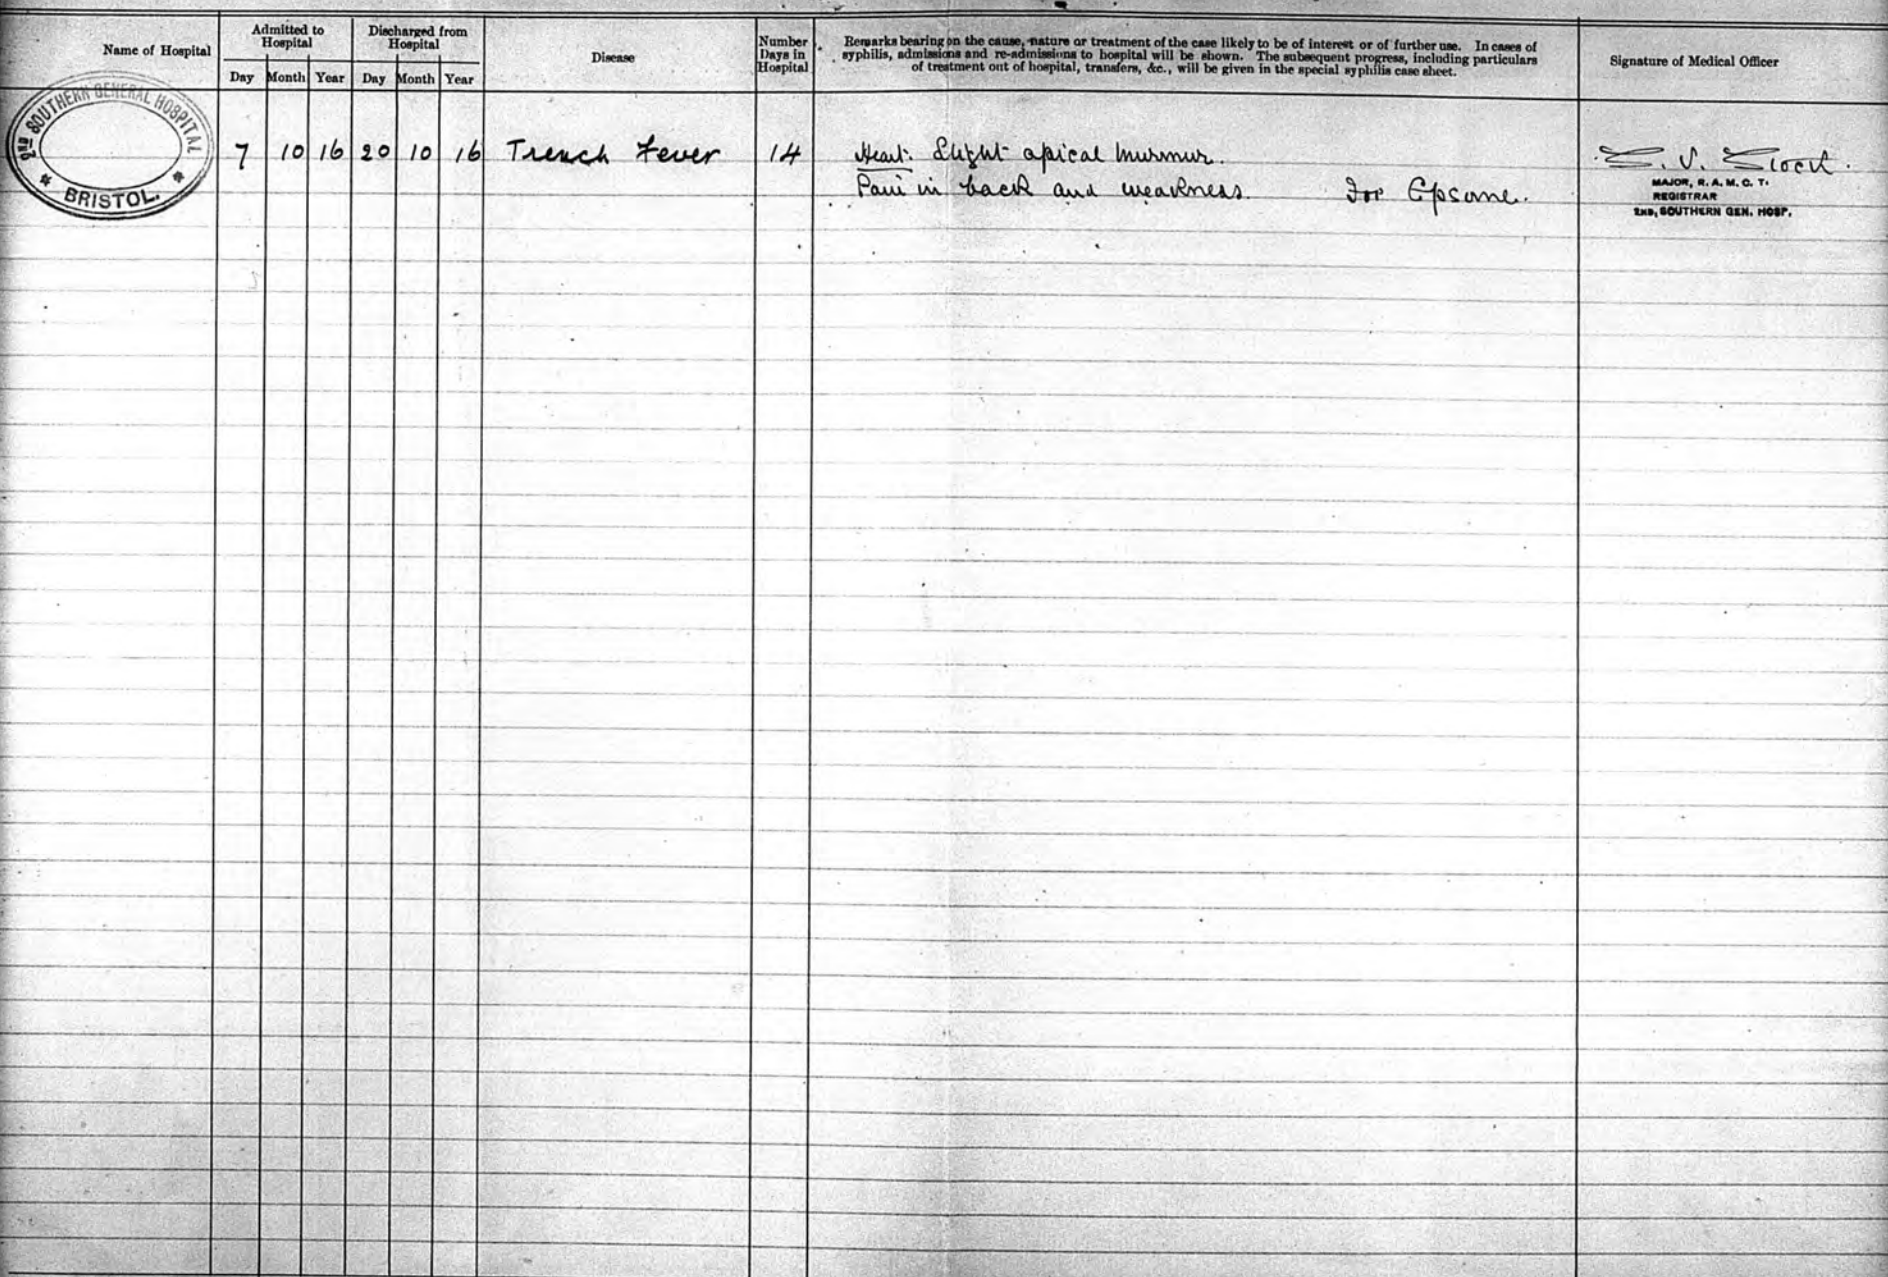 Name of Hospital
Admitted to
Hospital
Day Month Year
Discharged from
Hospital
Day Month Year
Disease
Number
Days in
Hospital
Remarks bearing on the cause, nature or treatment of the case likely to be of interest or of further use. In cases of
syphilis, admissions and re-admissions to hospital will be shown. The subsequent progress, including particulars
of treatment out of hospital, transfers, &c., will be given in the special syphilis case sheet.
Signature of Medical Officer
2ND SOUTHERN GENERAL HOSPITAL
* BRISTOL. *
7 10 16 20 10 16 Trench Fever 14 Heart: Slight apical murmur.
Pain in back and weakness. For Epsome.
MAJOR, R. A. M. C. T.
REGISTRAR
2ND, SOUTHERN GEN. HOSP.